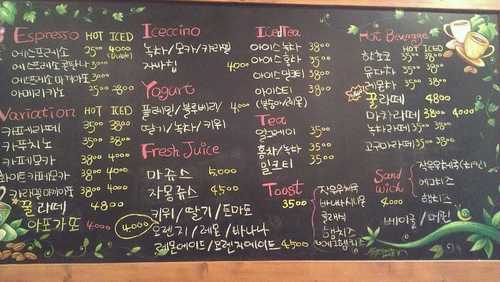 Espresso HOT ICED
에스프레소 3500 4000
에스프레소콘판나 3000
에스프레소마끼아또 3000
아메리카노 3500 3800
Variation HOT ICED
카페라떼 3500 3800
카푸치노 3500 3800
카페모카 3800 4000
화이트카페모카 3800 4000
카라멜마끼아또 3800 4000
꿀라떼 4800
아포가또 4000 4000
Iceccino
녹차/모카/카라멜
자바칩 4000
Yogurt
플레인/블루베리/ 4000
딸기/녹차/키위
Fresh Juice
마쥬스 5,000
자몽쥬스 4500
키위/딸기/토마토
4000 오렌지/레몬/바나나
레몬에이드/오렌지에이드 4500
Iced Tea
아이스녹차 3800
아이스홍차 3500
아이스밀크티 3800
아이스티 3800
(복숭아/레몬)
Tea
얼그레이 3500
홍차/녹차 3500
밀크티 3500
Toast
3500
햄치즈
Hot Beverage
HOT ICED
핫초코 3500 3800
유자차 3500 3800
레몬차 3500 3800
꿀라떼 4800
마차라떼 3800 4000
녹차라떼 3500 3800
고구마라떼 3500 3800
Sandwich
4000
에그치즈
햄치즈
베이글/머핀